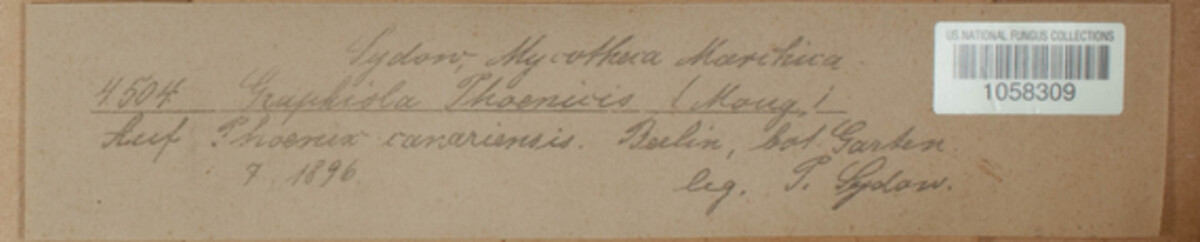 Sydow, Mycotheca Marchica
4504 Graphiola Phoenicis (Moug.)
Auf Phoenix canariensis. Berlin, bot. Garten
7 1896
leg. P. Sydow.
US NATIONAL FUNGUS COLLECTIONS
1058309